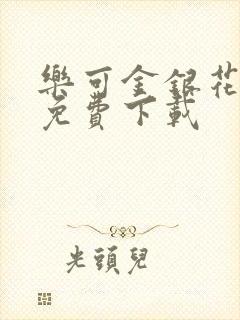 樂可金銀花
免費下載
光頭兒